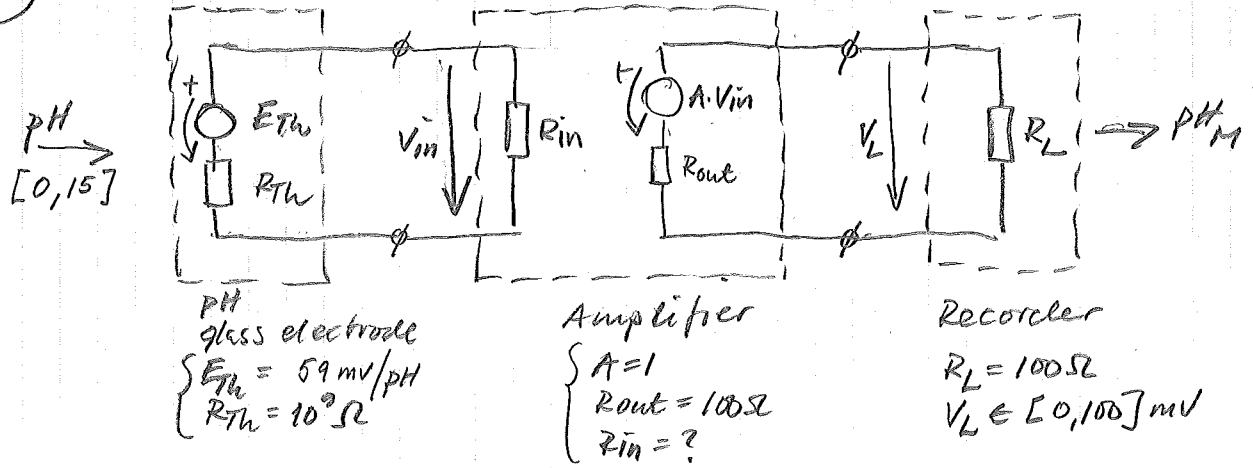 pH
[0,15]
+
E_Th
R_Th
V_in
R_in
+
A.V_in
R_out
V_L
R_L
⇒ pH_M
pH
glass electrode
{ E_Th = 59 mV/pH
R_Th = 10⁹ Ω
Amplifier
{ A=1
R_out = 100Ω
R_in = ?
Recorder
R_L = 100Ω
V_L ∈ [0,100] mV